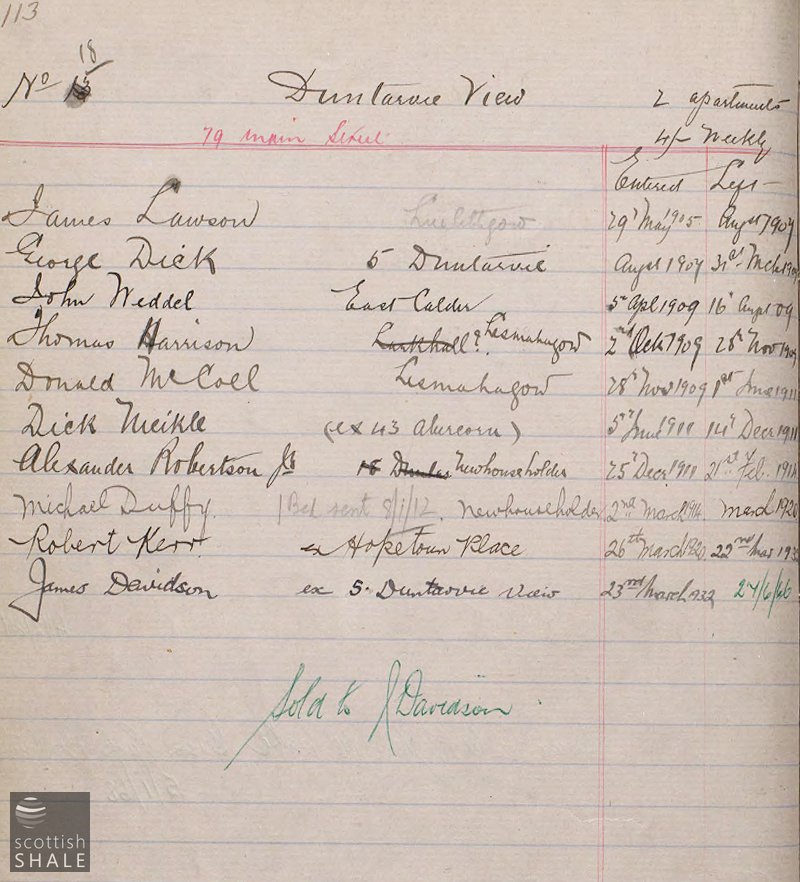 113
18
No
Duntarvie View
2 apartments
79 Main Street
4/- Weekly
Entered Left
James Lawson Linlithgow 29' May 1905 Augst 1907
George Dick 5 Duntarvie Augst 1907 31st Mch
John Weddel East Calder 5th Apl 1909 16' Augst 09
Thomas Harrison Larkhall?. Lesmahagow 2nd Octr 1909 28th Nov 1909
Donald McColl Lesmahagow 28' Nov 1909 1st June 1911
Dick Meikle (ex 43 Abercorn) 5' June 1911 14' Decr 1911
Alexander Robertson Jr 18 Newhouseholder 25' Decr 1911 21st Feb.
Michael Duffy. 1 Bed sent 8/1/12. Newhouseholder 2nd March 1914. March 1920
Robert Kerr. ex Hopetoun Place 26th March 1920 22nd Mar
James Davidson ex 5 Duntarvie View 23rd March 1932 24/6/66
Sold to J Davidson.
scottish
SHALE